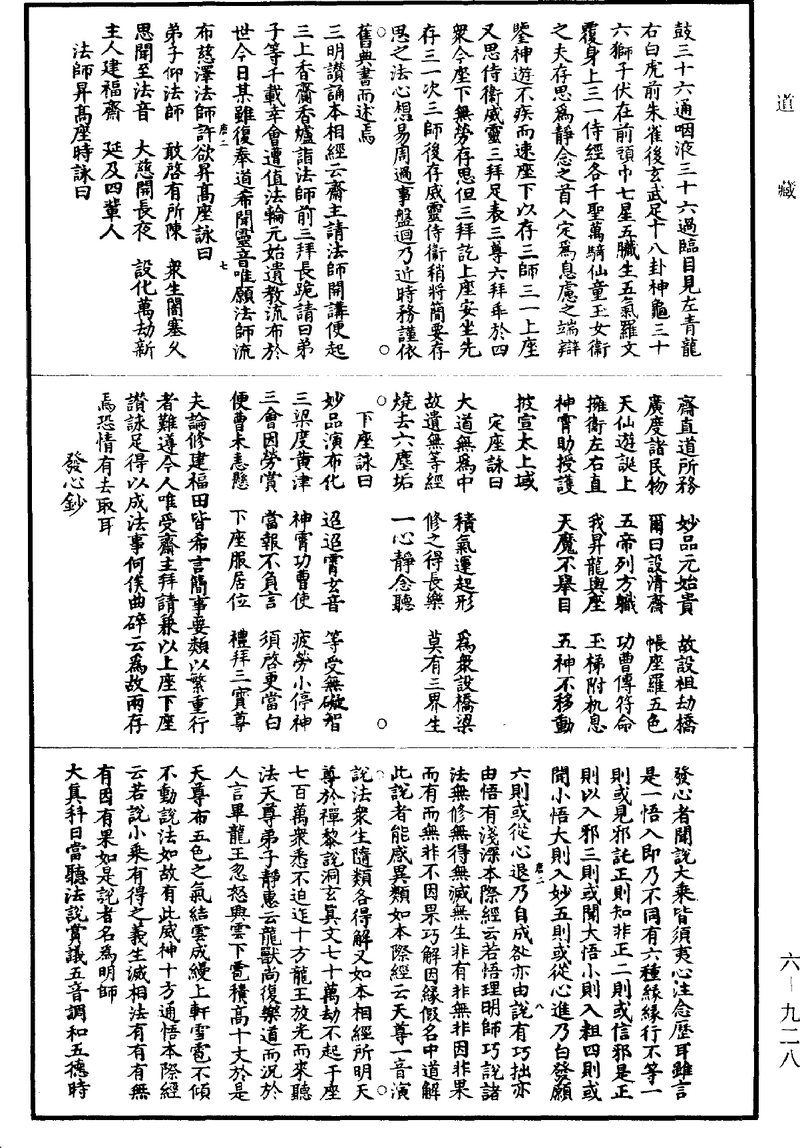 道藏
鼓三十六通咽液三十六過臨目見左青龍
右白虎前朱雀後玄武足十八卦神龜三十
六獅子伏在前頭巾七星五臟生五氣羅文
覆身上三一侍經各千聖萬騎仙童玉女衛
之夫存思爲靜念之首入定爲息慮之端辯
鑒神遊不疾而速座下以存三師三一上座
又思侍衛威靈三拜足表三尊六拜乖於四
衆令座下無勞存思但三拜訖上座安坐先
存三一次三師後存威靈侍衛稍將簡要存
思之法心想易周過事盤迴乃近時務謹依
舊典書而述焉
三明讃誦本相經云齋主請法師開講便起
三上香齋香爐詣法師前三拜長跪請曰弟
子等千載幸會遭值法輪元始遺教流布於
世今日某雖復奉道希聞靈音唯願法師流
唐二
七
布慈澤法師許欲昇髙座詠曰
弟子仰法師 敢啓有所陳 衆生闇塞久
思聞至法音 大慈開長夜 設化萬劫新
主人建福齋 延及四輩人
法師昇髙座時詠曰
齋直道所務 妙品元始貴 故設祖劫橋
廣度諸民物 爾日設清齋 帳座羅五色
天仙遊誕上 五帝列方軄 功曹傳符命
擁衛左右直 我昇龍輿座 玉梯附机息
神霄助授護 天魔不舉目 五神不移動
披宣太上域
定座詠曰
大道無爲中 積氣運起形 爲衆設橋梁
故遺無等經 修之得長樂 莫有三界生
燒去六塵垢 一心靜念聽
下座詠曰
妙品演布化 迢迢霄玄音 等受無礙智
三梁度黃津 神霄功曹使 疲勞小停神
三會因勞賞 當報不負言 須啓更當白
便曹未恚懸 下座服居位 禮拜三寳尊
夫論修建福田皆希言簡事要頰以繁重行
者難遵今人唯受齋主拜請兼以上座下座
讃詠足得以成法事何俟曲碎云爲故兩存
焉恐情有去取耳
發心鈔
發心者聞說大乘皆須夷心注念歴耳雖言
是一悟入即乃不同有六種緣緣行不等一
則或見邪託正則知非正二則或信邪是正
則以入邪三則或聞大悟小則入粗四則或
聞小悟大則入妙五則或從心進乃白發願
六則或從心退乃自成咎亦由說有巧拙亦
唐二
八
由悟有淺深本際經云若悟理明師巧說諸
法無修無得無滅無生非有非無非因非果
而有而無非不因果巧解因緣假名中道解
此說者能感異類如本際經云天尊一音演
說法衆生隨類各得解又如本相經所明天
尊於禪黎說洞玄眞文七十萬劫不起于座
七百萬衆悉不迫迮十方龍王放光而來聽
法天尊弟子靜惠云龍獸尚復樂道而況於
人言畢龍王忽怒興雲下雹積高十丈於是
天尊布五色之氣結雲成縵上軒雪雹不傾
不動說法如故有此威神十方通悟本際經
云若說小乘有得之義生滅相法有有有無
有因有果如是說者名爲明師
大真科曰當聽法說賞議五音調和五德時
六—九二八